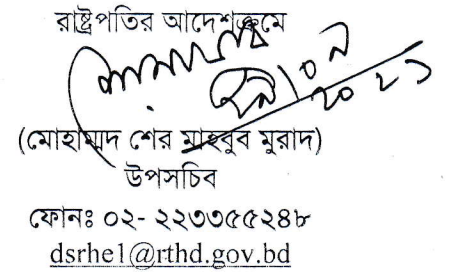 রাষ্ট্রপতির আদেশক্রমে
(মোহাম্মদ শের মাহবুব মুরাদ)
উপসচিব
ফোনঃ ০২- ২২৩৩৫৫২৪৮
dsrhe1@rthd.gov.bd